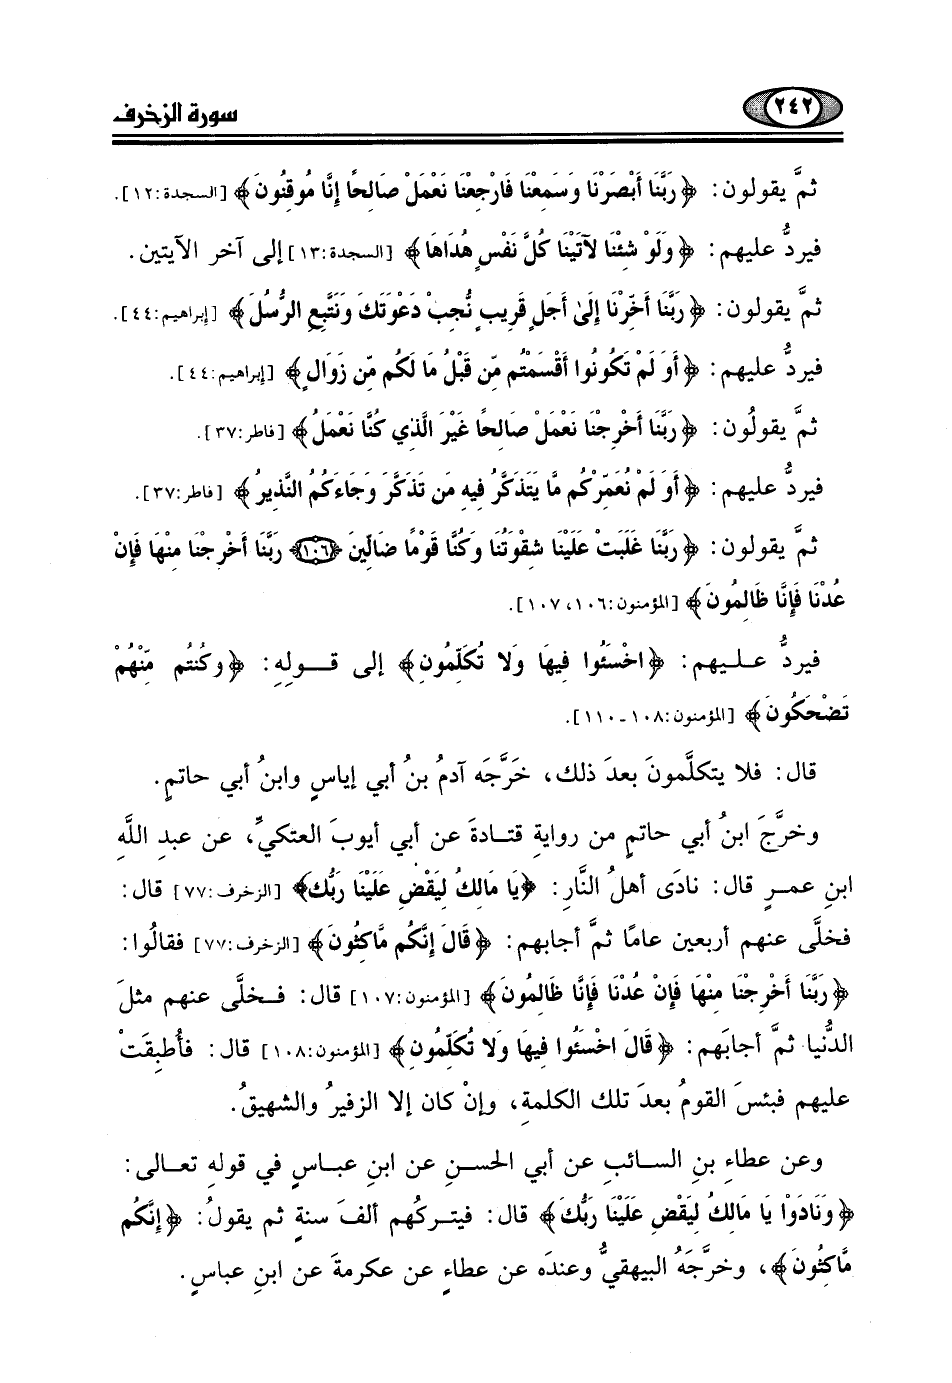 ٢٤٢ سورة الزخرف
ثمَّ يقولون: ﴿رَبَّنَا أَبْصَرْنَا وَسَمِعْنَا فَارْجِعْنَا نَعْمَلْ صَالِحًا إِنَّا مُوقِنُونَ﴾ [السجدة:١٢].
فيردُّ عليهم: ﴿وَلَوْ شِئْنَا لآتَيْنَا كُلَّ نَفْسٍ هُدَاهَا﴾ [السجدة:١٣] إلى آخر الآيتين.
ثمَّ يقولون: ﴿رَبَّنَا أَخِّرْنَا إِلَىٰ أَجَلٍ قَرِيبٍ نُّجِبْ دَعْوَتَكَ وَنَتَّبِعِ الرُّسُلَ﴾ [إبراهيم:٤٤].
فيردُّ عليهم: ﴿أَوَ لَمْ تَكُونُوا أَقْسَمْتُم مِّن قَبْلُ مَا لَكُم مِّن زَوَالٍ﴾ [إبراهيم:٤٤].
ثمَّ يقولُون: ﴿رَبَّنَا أَخْرِجْنَا نَعْمَلْ صَالِحًا غَيْرَ الَّذِي كُنَّا نَعْمَلُ﴾ [فاطر:٣٧].
فيردُّ عليهم: ﴿أَوَ لَمْ نُعَمِّرْكُم مَّا يَتَذَكَّرُ فِيهِ مَن تَذَكَّرَ وَجَاءَكُمُ النَّذِيرُ﴾ [فاطر:٣٧].
ثمَّ يقولون: ﴿رَبَّنَا غَلَبَتْ عَلَيْنَا شِقْوَتُنَا وَكُنَّا قَوْمًا ضَالِّينَ ﴿١٠٦﴾ رَبَّنَا أَخْرِجْنَا مِنْهَا فَإِنْ
عُدْنَا فَإِنَّا ظَالِمُونَ﴾ [المؤمنون:١٠٦، ١٠٧].
فيردُّ عليهم: ﴿اخْسَئُوا فِيهَا وَلا تُكَلِّمُونِ﴾ إلى قولِهِ: ﴿وَكُنتُم مِّنْهُمْ
تَضْحَكُونَ﴾ [المؤمنون:١٠٨-١١٠].
قال: فلا يتكلَّمونَ بعدَ ذلك، خَرَّجَه آدمُ بنُ أبي إياسٍ وابنُ أبي حاتمٍ.
وخرَّجَ ابنُ أبي حاتمٍ من روايةِ قتادةَ عن أبي أيوبَ العتكيِّ، عن عبدِ اللَّهِ
ابنِ عمرٍ قال: نادَى أهلُ النَّارِ: ﴿يَا مَالِكُ لِيَقْضِ عَلَيْنَا رَبُّكَ﴾ [الزخرف:٧٧] قال:
فخلَّى عنهم أربعين عامًا ثمَّ أجابهم: ﴿قَالَ إِنَّكُم مَّاكِثُونَ﴾ [الزخرف:٧٧] فقالُوا:
﴿رَبَّنَا أَخْرِجْنَا مِنْهَا فَإِنْ عُدْنَا فَإِنَّا ظَالِمُونَ﴾ [المؤمنون:١٠٧] قال: فخلَّى عنهم مثلَ
الدُّنيا ثمَّ أجابَهم: ﴿قَالَ اخْسَئُوا فِيهَا وَلا تُكَلِّمُونِ﴾ [المؤمنون:١٠٨] قال: فأُطبقَتْ
عليهم فبئسَ القومُ بعدَ تلك الكلمةِ، وإنْ كان إلا الزفيرُ والشهيقُ.
وعن عطاءِ بنِ السائبِ عن أبي الحسنِ عن ابنِ عباسٍ في قولِهِ تعالى:
﴿وَنَادَوْا يَا مَالِكُ لِيَقْضِ عَلَيْنَا رَبُّكَ﴾ قال: فيتركُهم ألفَ سنةٍ ثم يقولُ: ﴿إِنَّكُم
مَّاكِثُونَ﴾، وخرَّجَهُ البيهقيُّ وعندَه عن عطاءٍ عن عكرمةَ عن ابنِ عباسٍ.